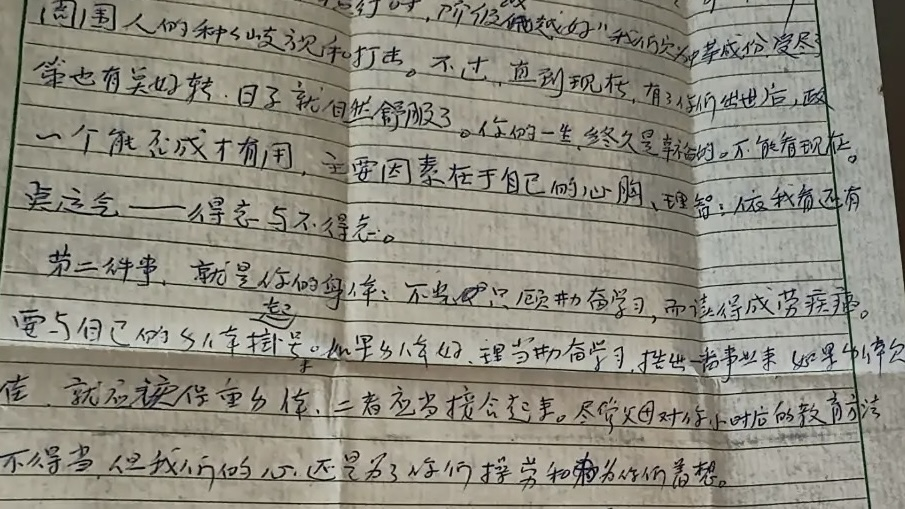 时，阶级 越好"我们家 成份，受尽了
周围人的种种歧视和打击。不过，直到现在，有了你们出世后，政
策也有莫好转，日子就自然舒服了。你的一生，终久是幸福的。不能看现在。
一个能否成才有用，主要因素在于自己的心胸、理智；依我看还有
点运气——得志与不得志。
第二件事，就是你的身体：不当只顾勤奋学习，而读得成劳疾病。
要与自己的身体挂起号。如果身体好，理当勤奋学习，挂出一番事业来，如果身体欠
佳，就应该保重身体，二者应当接合起来。尽管父母对你小时后的教育方法
不得当，但我们的心，还是为了你们操劳和为你们着想。